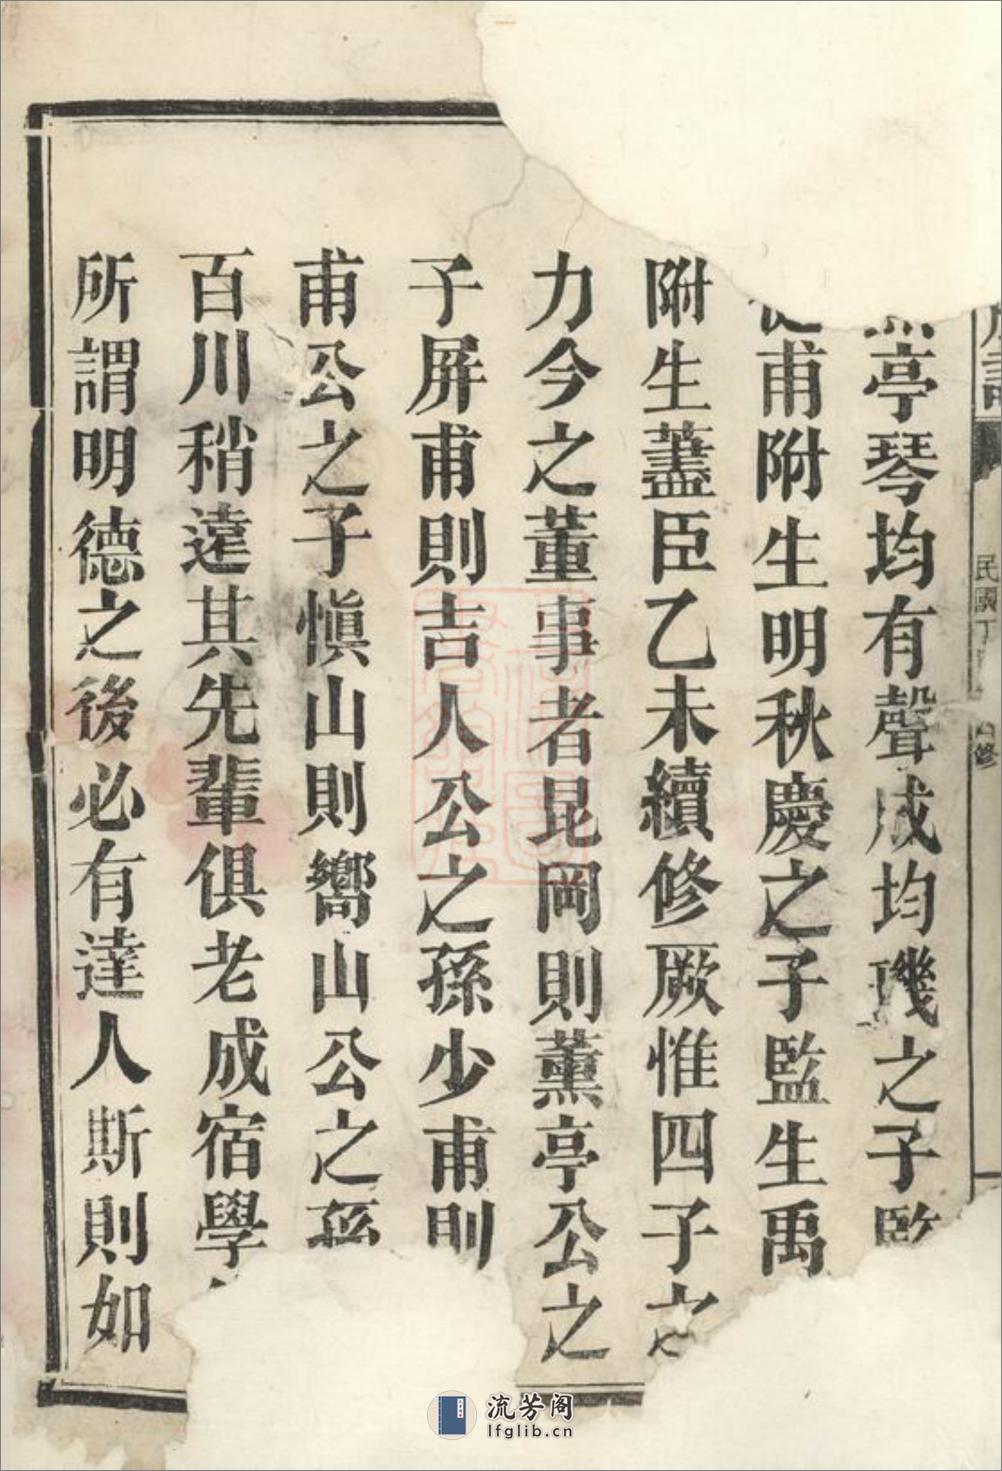 亭琴均有聲成均璣之子監
甫附生明秋慶之子監生禹
附生藎臣乙未續修厥惟四子之
力今之董事者昆岡則薰亭公之
子屏甫則吉人公之孫少甫則
甫公之子愼山則嚮山公之孫
百川稍遠其先輩俱老成宿學
所謂明德之後必有達人斯則如
民國丁
修
流芳阁
lfglib.cn